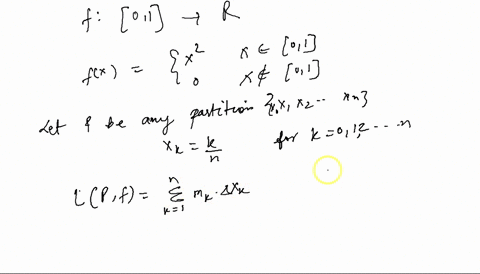 f: [0,1] → R
f(x) = { x² x ∈ [0,1]
0 x ∉ [0,1]
Let P be any partition {x₀ x₁ x₂ -- xn}
xₖ = k/n for k = 0,1,2 ---- n
L(P,f) = Σ_{k=1}^{n} mₖ · Δxₖ